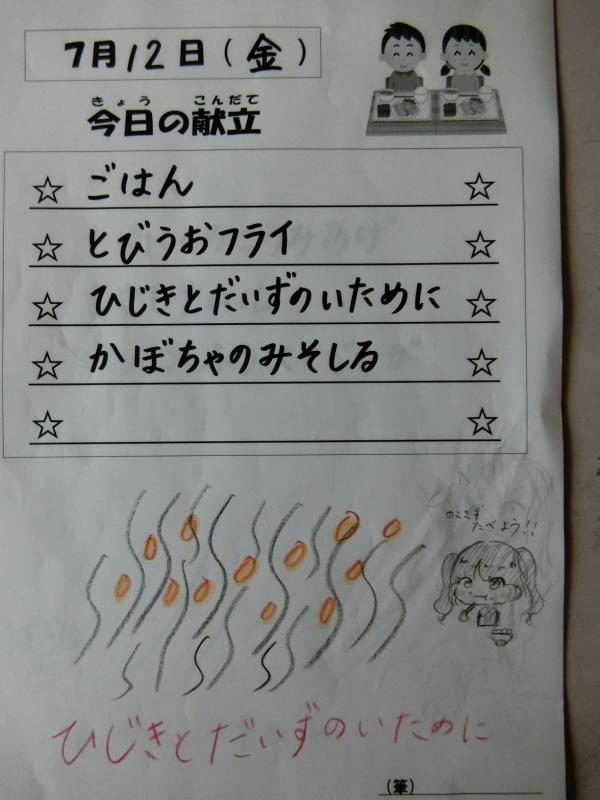 7月12日(金)
きょう こんだて
今日の献立
☆ ごはん ☆
☆ とびうおフライ ☆
☆ ひじきとだいずのいために ☆
☆ かぼちゃのみそしる ☆
☆ ☆
のこさず
たべよう!!
ひじきとだいずのいために
(筆)